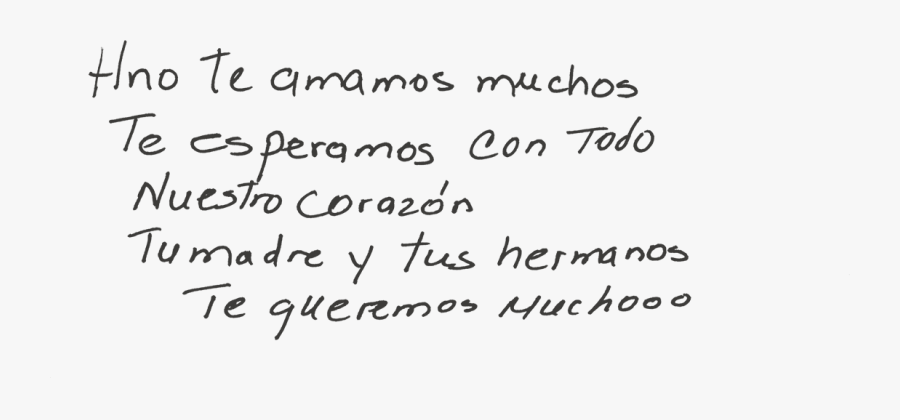 Hno Te amamos muchos
Te esperamos con Todo
Nuestro corazón
Tu madre y tus hermanos
Te queremos Muchooo